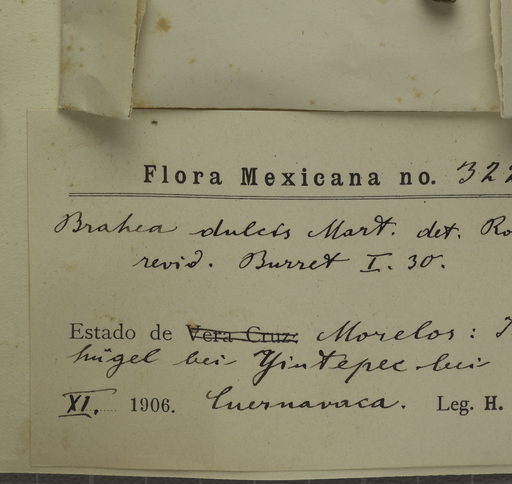 Flora Mexicana no. 322
Brahea dulcis Mart. det.
revid. Burret I. 30.
Estado de Vera Cruz: Morelos:
hügel bei Yintepec bei
XI. 1906. Cuernavaca. Leg. H.